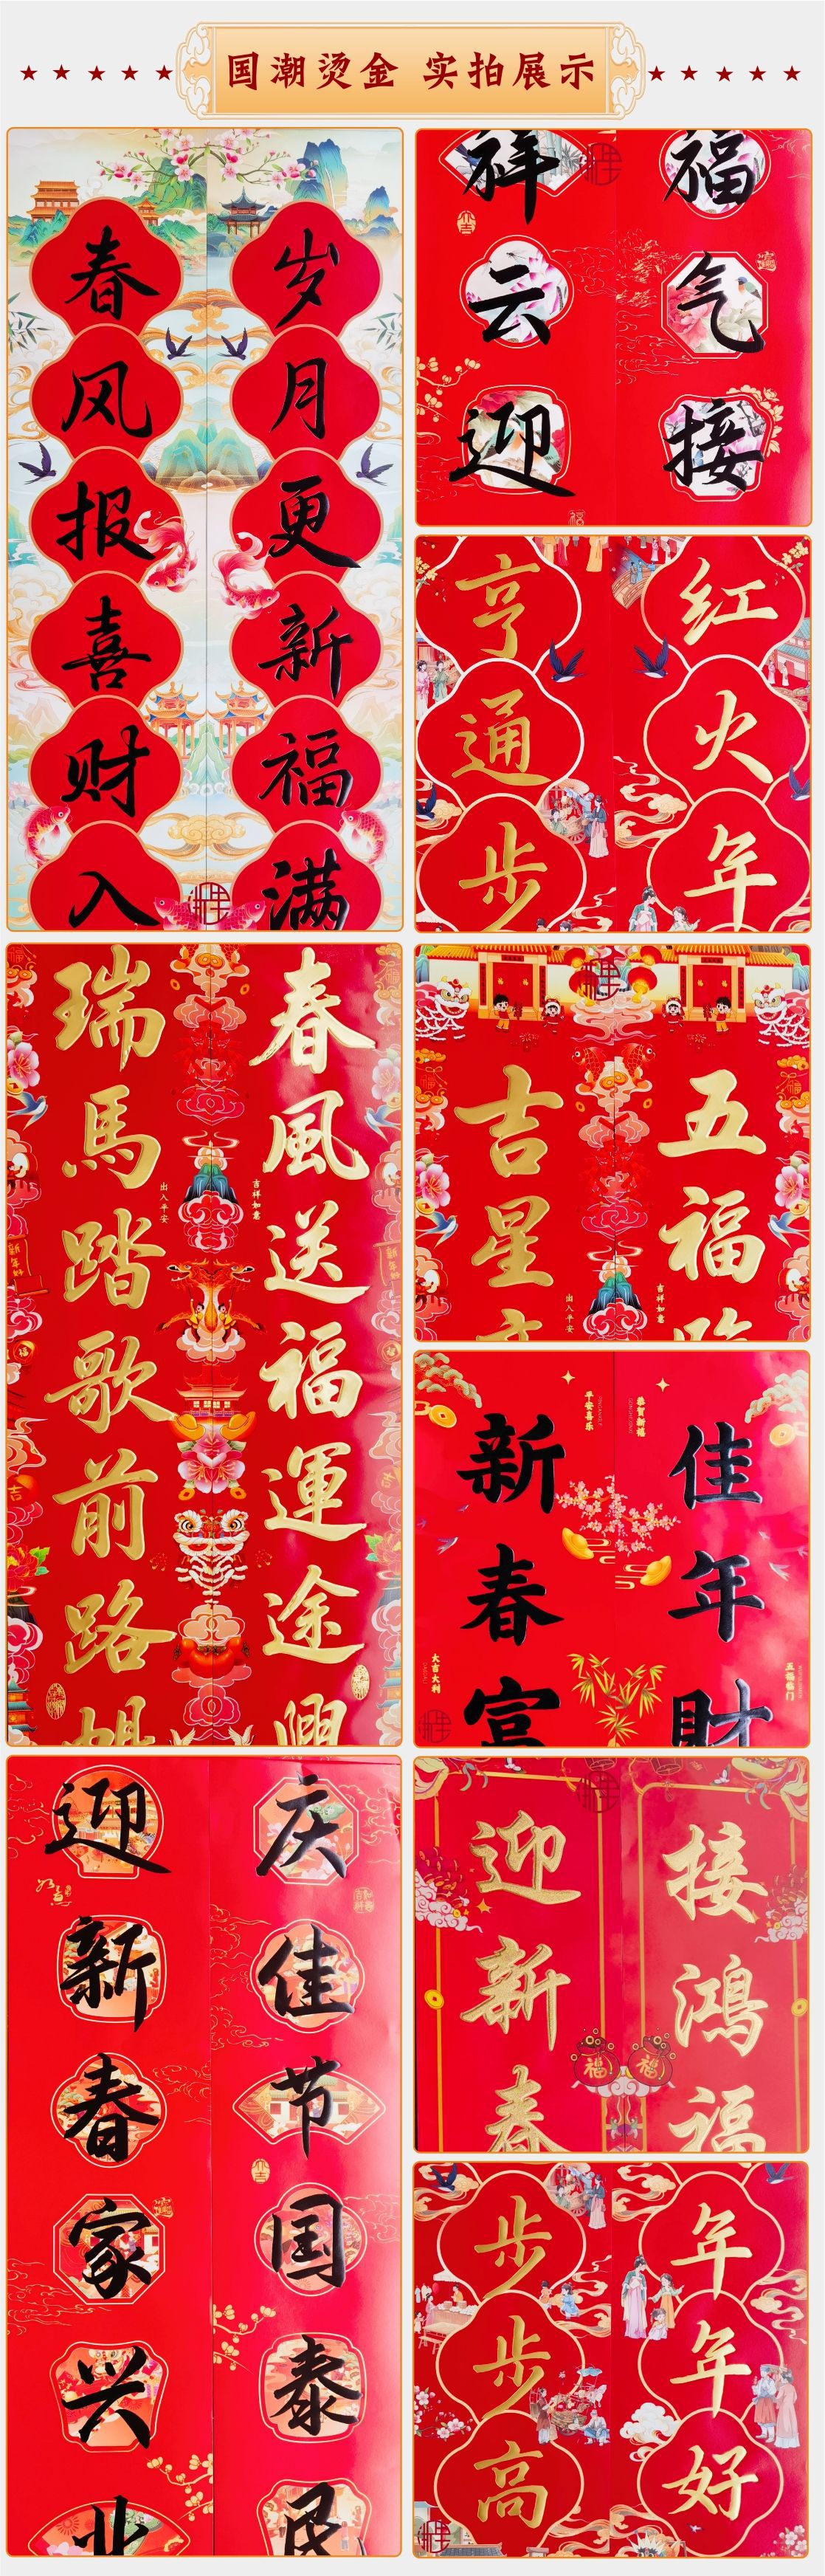 国潮烫金 实拍展示
春风报喜财入
岁月更新福满
祥云迎
福气接
亨通步
红火年
瑞馬踏歌前路
春風送福運途興
出入平安
吉祥如意
吉星
五福臨
出入平安
吉祥如意
新春富
佳年財
平安喜乐
恭贺新禧
大吉大利
五福临门
迎新春家兴业
庆佳节国泰民
大吉
迎新春
接鸿福
福
福
步步高
年年好